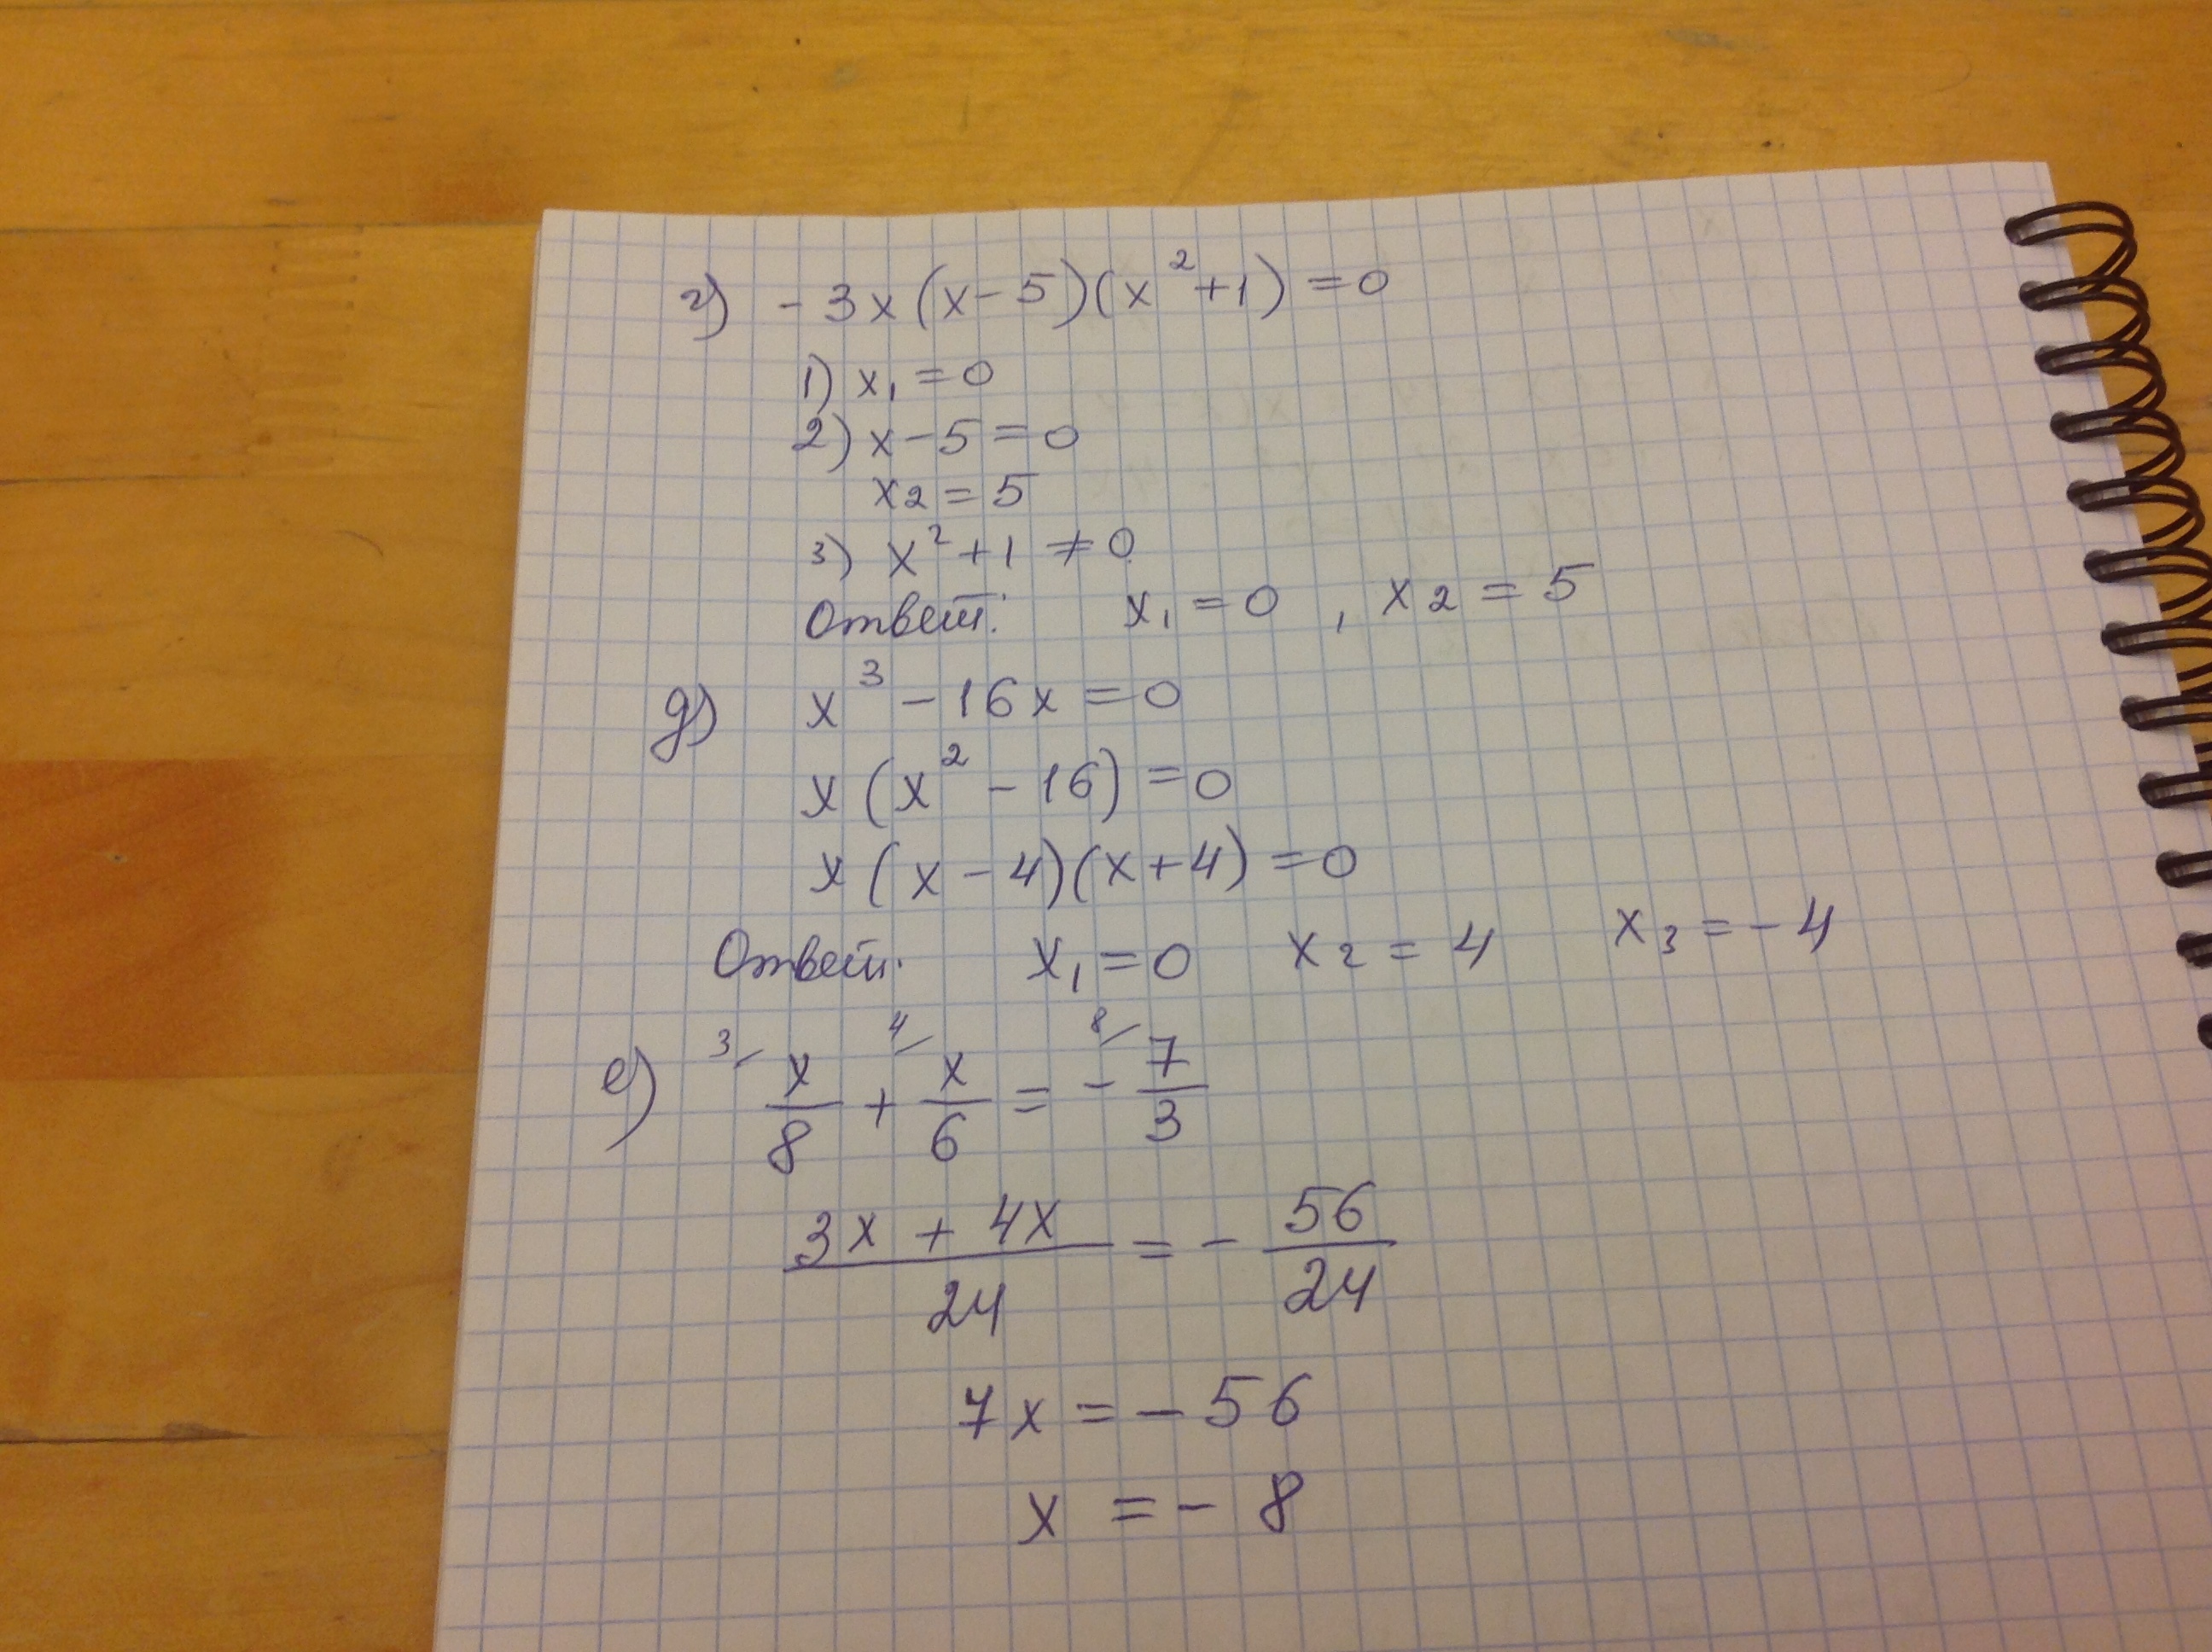 г) -3x(x-5)(x²+1)=0
1) x₁=0
2) x-5=0
x₂=5
3) x²+1≠0
Ответ: x₁=0, x₂=5
д) x³-16x=0
x(x²-16)=0
x(x-4)(x+4)=0
Ответ: x₁=0 x₂=4 x₃=-4
3/ 4/ 8/
е) x/8 + x/6 = - 7/3
(3x+4x)/24 = - 56/24
7x=-56
x=-8